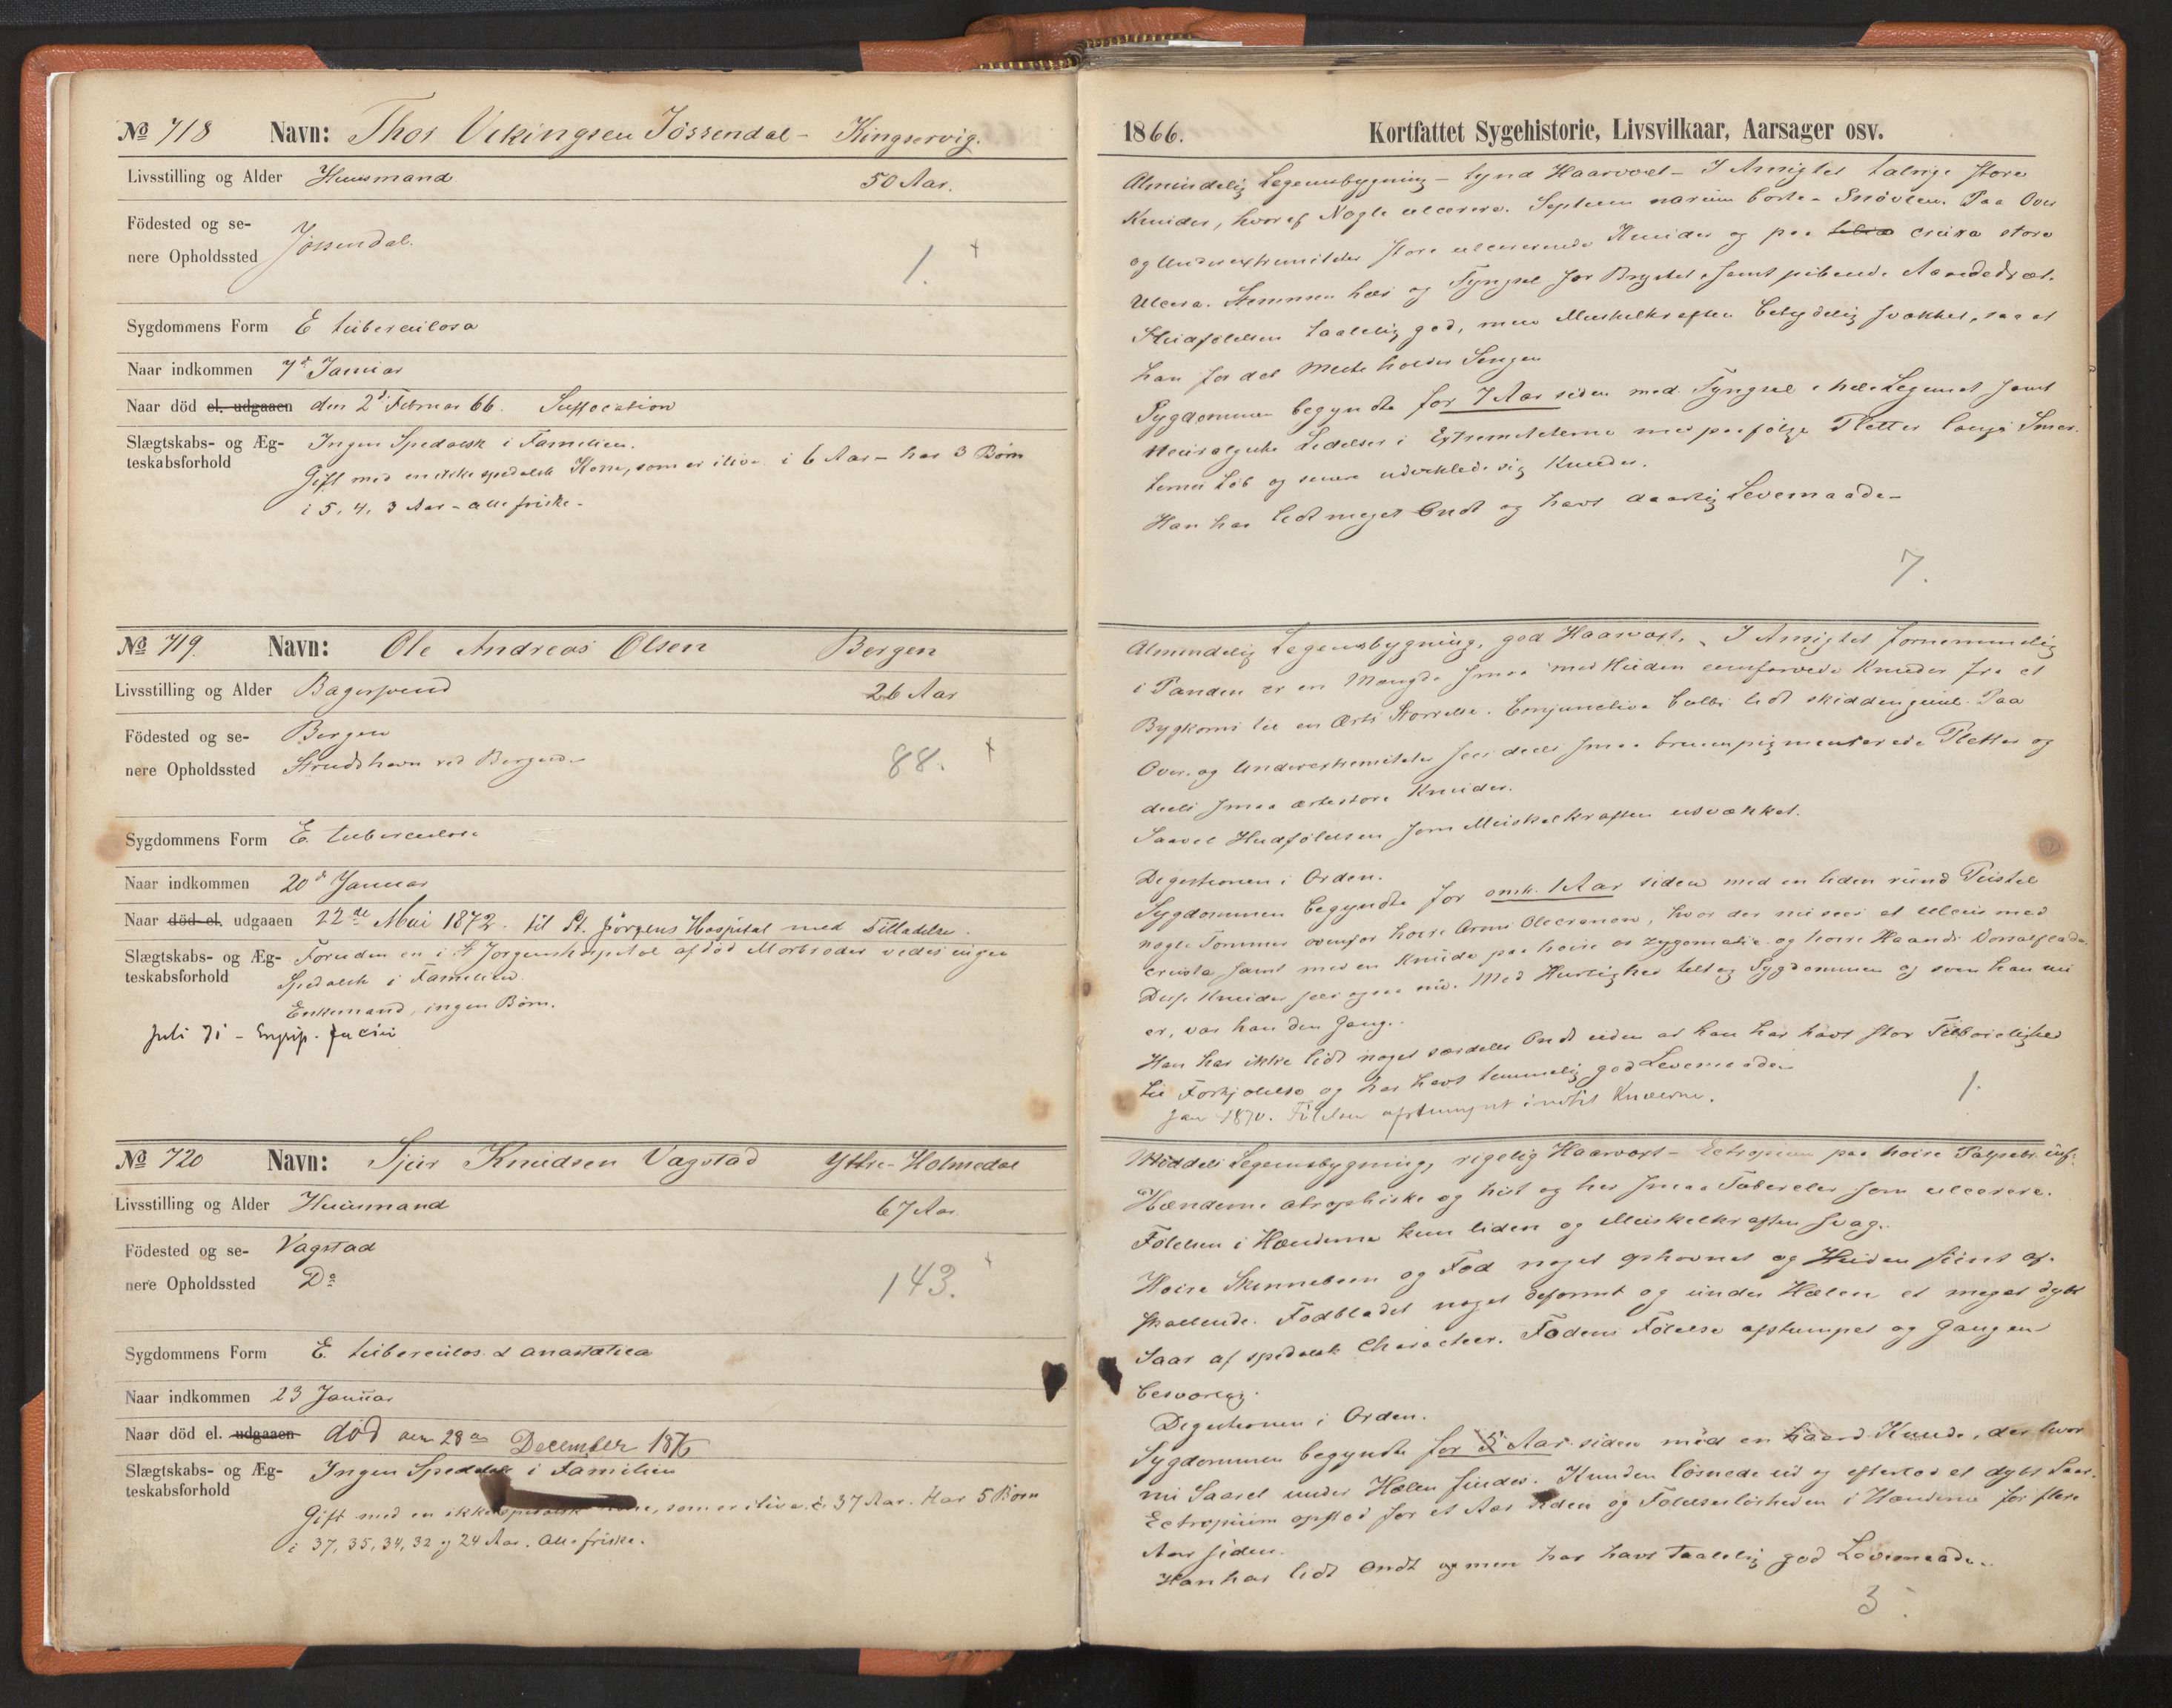 № 718 Navn: Thos Vikingsen Jössendal - Kingservig.
Livsstilling og Alder Huusmand 50 Aar.
Födested og se-
nere Opholdssted Jössendal.
1. +
Sygdommens Form E tuberculosa
Naar indkommen 7d Januar
Naar död el. udgaaen den 2d Februar 66. Suffocation
Slægtskabs- og Æg-
teskabsforhold
Ingen Spedalsk i Familien.
Gift med en ikke spedalsk Kone, som er ilive i 6 Aar - har 3 Börn
i 5, 4, 3 Aar - alle friske -
№ 719. Navn: Ole Andreas Olsen Bergen
Livsstilling og Alder Bagersvend 26 Aar
Födested og se- Bergen
nere Opholdssted Strudshavn ved Bergen
88. +
Sygdommens Form E. tuberculosa
Naar indkommen 20d Januar
Naar död el. udgaaen 22de Mai 1872. til St. Jörgens Hospital med Tilladelse.
Slægtskabs- og Æg-
teskabsforhold
Foruden en i St Jörgenshospital afdöd Morbroder vedes ingen
Spedalsk i Familien
Enkemand, ingen Börn.
Juli 71 - faciei
№ 720 Navn: Sjur Knudsen Vagstad Yttre-Holmedal
Livsstilling og Alder Huusmand 67 Aar.
Födested og se- Vagstad
nere Opholdssted Do
143. +
Sygdommens Form E. tuberculos. & anæsthetica
Naar indkommen 23 Januar
Naar död el. udgaaen död den 28de December 1876
Slægtskabs- og Æg-
teskabsforhold
Ingen Spedalsk i Familien
Gift med en ikke spedalsk Kone, som er ilive i 37 Aar. Har 5 Börn
i 37, 35, 34, 32 og 24 Aar. Alle friske.
1866. Kortfattet Sygehistorie, Livsvilkaar, Aarsager osv.
Almindelig Legemsbygning - tynd Haarvæxt - I Ansigtet talrige store
Knuder, hvoraf Nogle ulcerere. Septum narium borte - Snövlen. Paa Over
og Underextremiteter store ulcererende Knuder og paa crura store
Ulcera. Stemmen hæs og Tyngsel for Brystet, samt pibende Aandedræt.
Hudfölelsen taalelig god, men Muskelkraften betydelig svækket, saa at
han for det Meste holder Sengen
Sygdommen begyndte for 7 Aar siden med Tyngsel i hele Legemet samt
neuralgiske Lidelser i Extremiteterne med paafölge Pletter langs Smer-
ternes Löb og senere udviklede sig Knuder.
Han har lidt meget Ondt og havt daarlig Levemaade -
7.
Almindelig Legemsbygning, god Haarvæxt. - I Ansigtet fornemmelig
i Panden er en Mængde smaa med Huden eensfarvede Knuder fra et
Bygkorns til en Erts Störrelse. Conjunctiva bulbi lidt skiddengul. Paa
Over- og Underextremiteter sees deels smaa bruunpigmenterede Pletter og
deels smaa ertestore Knuder.
Saavel Hudfölelsen som Muskelkraften usvækket.
Digestionen i Orden.
Sygdommen begyndte for omtr. 1 Aar siden med en liden rund Pustel
nogle Tommer ovenfor höire Arms Olecranon, hvor der nu sees et Ulcus med
crusta samt med en Knude paa höire os zygomatic. og höire Haands Dorsalflade.
Disse Knuder sees ogsaa nu. Med Hurtighed tiltog Sygdommen og som han nu
er, var han den Gang.
Han har ikke lidt noget særdeles Ondt uden at han har havt stor Tilböielighed
til Forkjölelse og har havt temmelig god Levemaade
Jan 1870. Fölelsen afstumpet indtil Knæerne.
1.
Middels Legemsbygning, rigelig Haarvæxt - Ectropium paa höire Palpebr. inf.
Hænderne atrophiske og hist og her smaa Tuberkler som ulcerere.
Fölelsen i Hænderne kun liden og Muskelkraften svag.
Höire Skinnebeen og Fod noget ophovnet og Huden fiint af-
skallende. Fodbladet noget deformt og under Hælen et meget dybt
Saar af spedalsk Characteer. Fodens Fölelse afstumpet og Gangen
besværlig.
Digestionen i Orden.
Sygdommen begyndte for 5 Aar siden med en haard Knude, der hvor
nu Saaret under Hælen findes. Knuden lösnede ud og efterlod et dybt Saar.
Ectropium opstod for et Aar siden og Fölelseslösheden i Hænderne for flere
Aar siden.
Han har lidt Ondt og men har havt taalelig god Levemaade.
3.